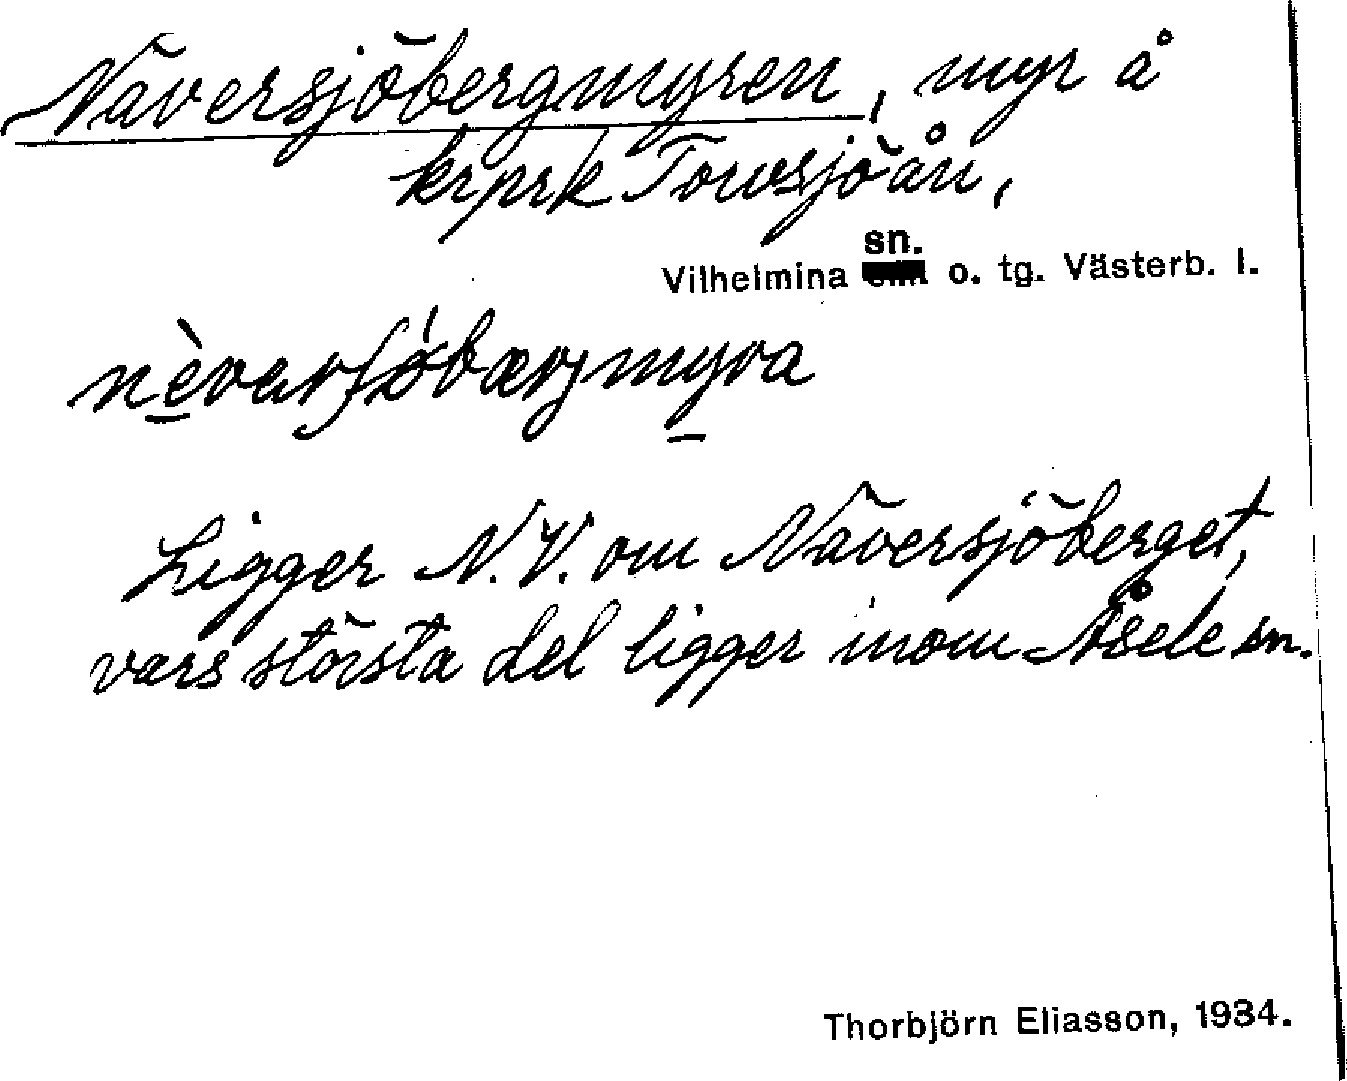 Näversjöbergmyren, myr å
krprk Torvsjöån,
sn.
Vilhelmina o. tg. Västerb. l.
nèvarʃö́bærjmyra
Ligger N.V. om Näversjöberget,
vars största del ligger inom Åsele sn.
Thorbjörn Eliasson, 1934.